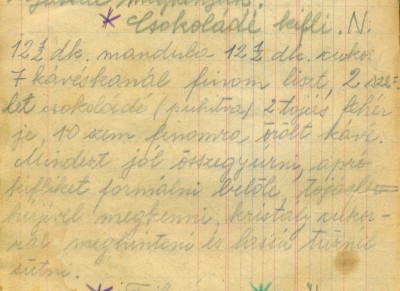 * Csokoládé kifli. N.
12 1/2 dk. mandula 12 1/2 dk. cukor
7 kávéskanál finom liszt, 2 sze=
let csokoládé (puhítva) 2 tojás fehér
je, 10 szem finomra őrölt kávé.
Mindezt jól összegyúrni, apró
kifliket formálni belőle, tojásfe=
hérjével megkenni, kristály cukor-
ral meghinteni és lassú tűznél
sütni.